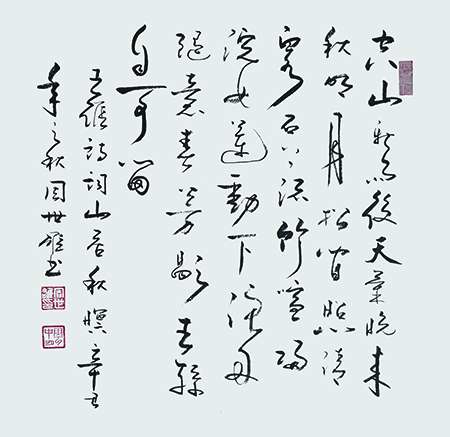 空山新雨後天氣晚来
秋明月松间照清
泉石上流竹喧归
浣女莲動下渔舟
随意春芳歇王孫
自可留
王维诗词山居秋暝辛丑
年之秋周世雄书